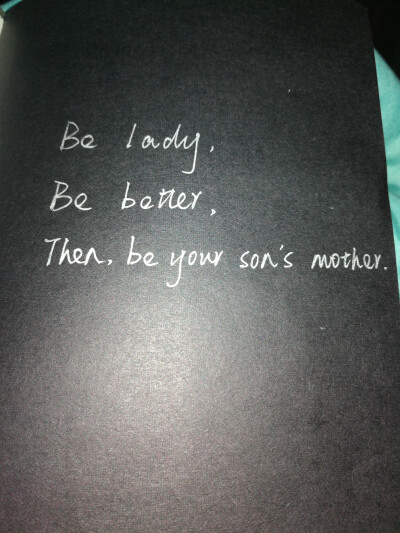 Be lady,
Be better,
Then, be your son's mother.